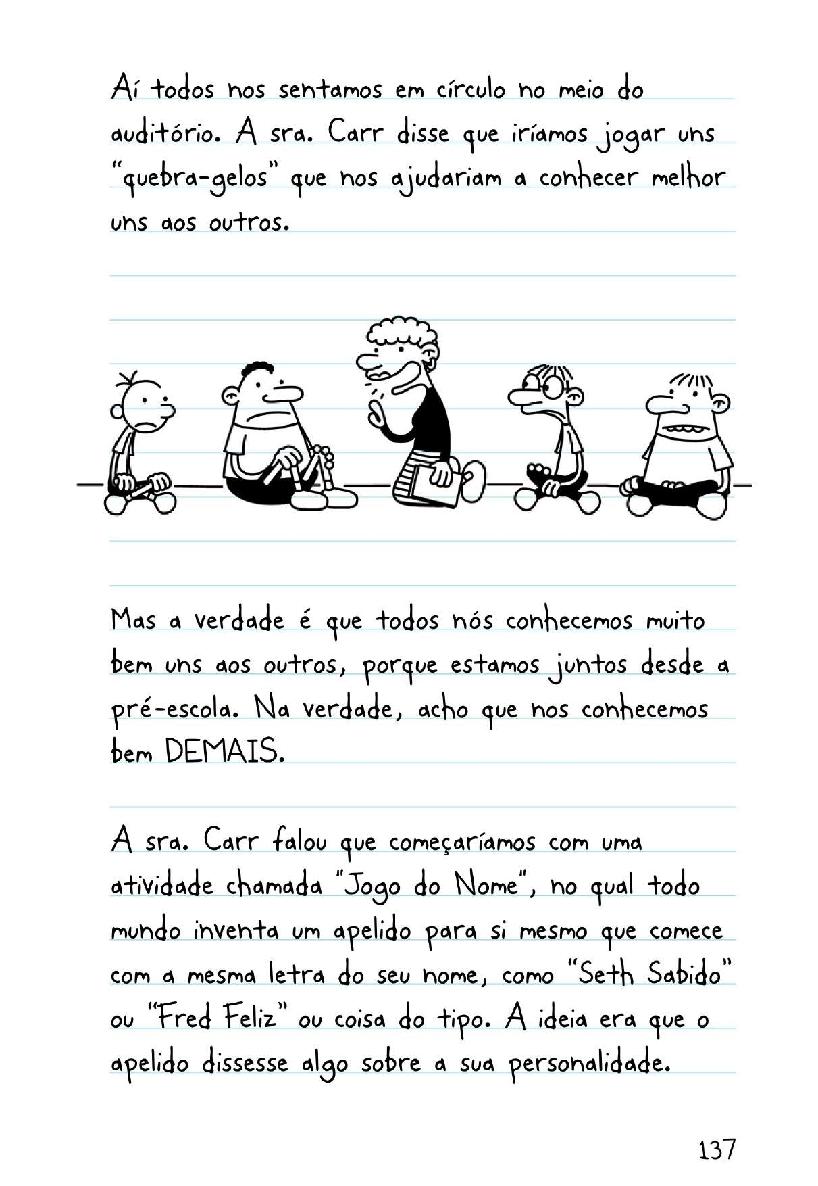 Aí todos nos sentamos em círculo no meio do
auditório. A sra. Carr disse que iríamos jogar uns
"quebra-gelos" que nos ajudariam a conhecer melhor
uns aos outros.
Mas a verdade é que todos nós conhecemos muito
bem uns aos outros, porque estamos juntos desde a
pré-escola. Na verdade, acho que nos conhecemos
bem DEMAIS.
A sra. Carr falou que começaríamos com uma
atividade chamada "Jogo do Nome", no qual todo
mundo inventa um apelido para si mesmo que comece
com a mesma letra do seu nome, como "Seth Sabido"
ou "Fred Feliz" ou coisa do tipo. A ideia era que o
apelido dissesse algo sobre a sua personalidade.
137